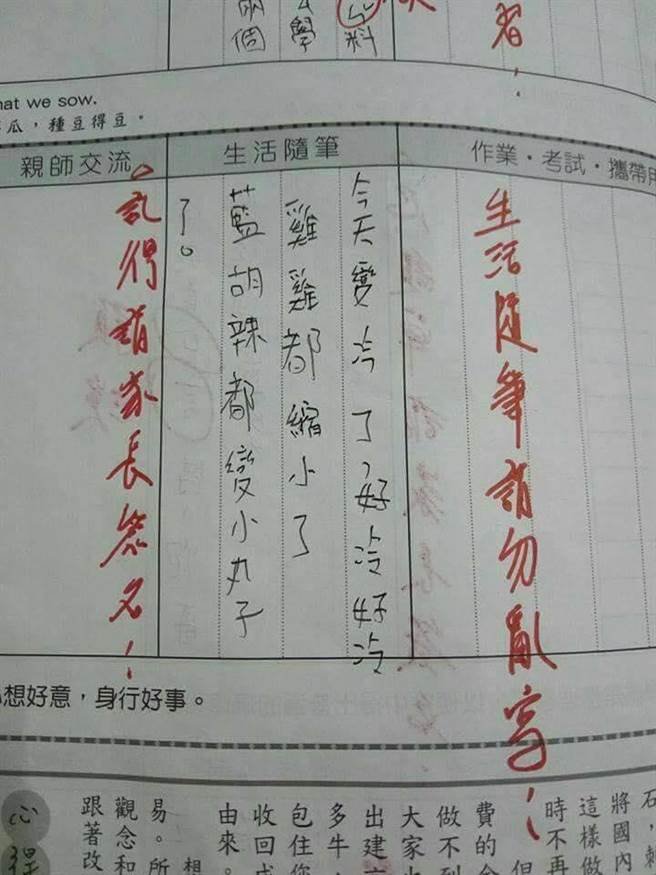 兩個
學
料
者！
hat we sow.
瓜，種豆得豆。
作業・考試・攜帶用
生活隨筆
親師交流
生活隨筆請勿亂寫！
今天變冷了，好冷好冷
雞雞都縮小了
藍胡辣都變小丸子
了。
記得請家長簽名！
想好意，身行好事。
石，刺
將國內
這樣做
時不再
但
費的金
做不到
大家
出建
多牛，
包住您
收回成
由來。
想
易。所
觀念和
跟著改
心得